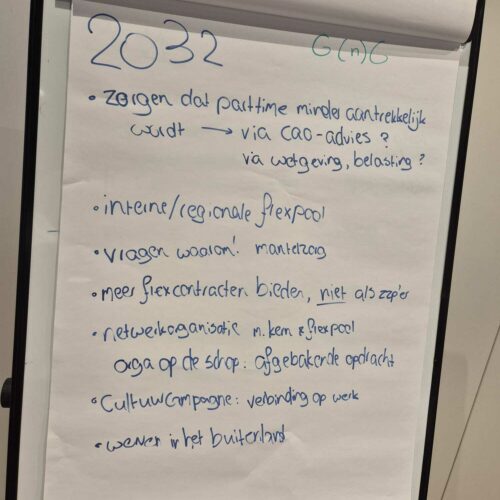 2032
G(n)G
• zorgen dat parttime minder aantrekkelijk
wordt → via cao-advies?
via wetgeving, belasting?
• interne/regionale flexpool
• vragen waarom! mantelzorg
• meer flexcontracten bieden, niet als zzp'er
• netwerkorganisatie m. kern & flexpool
orga op de schop: afgebakende opdracht
• Cultuurcampagne: verbinding op werk
• werven in het buitenland